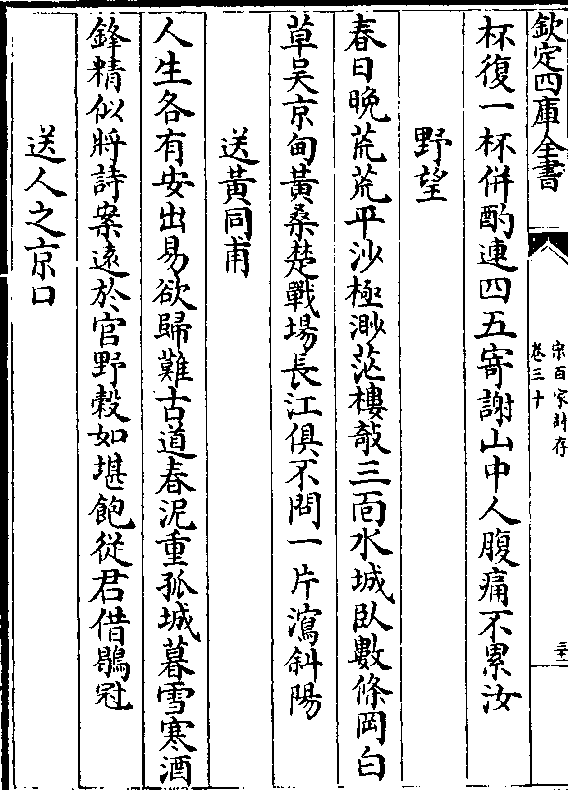 欽定四庫全書
宋百家詩存
卷三十
杯復一杯併酌連四五寄謝山中人腹痛不累汝
野望
春日晚荒荒平沙極渺茫樓敧三面水城臥數條岡白
草吳京甸黃桑楚戰場長江俱不問一片瀉斜陽
送黃同甫
人生各有安出易欲歸難古道春泥重孤城暮雪寒酒
鋒精似將詩案遠於官野穀如堪飽從君借鶡冠
送人之京口